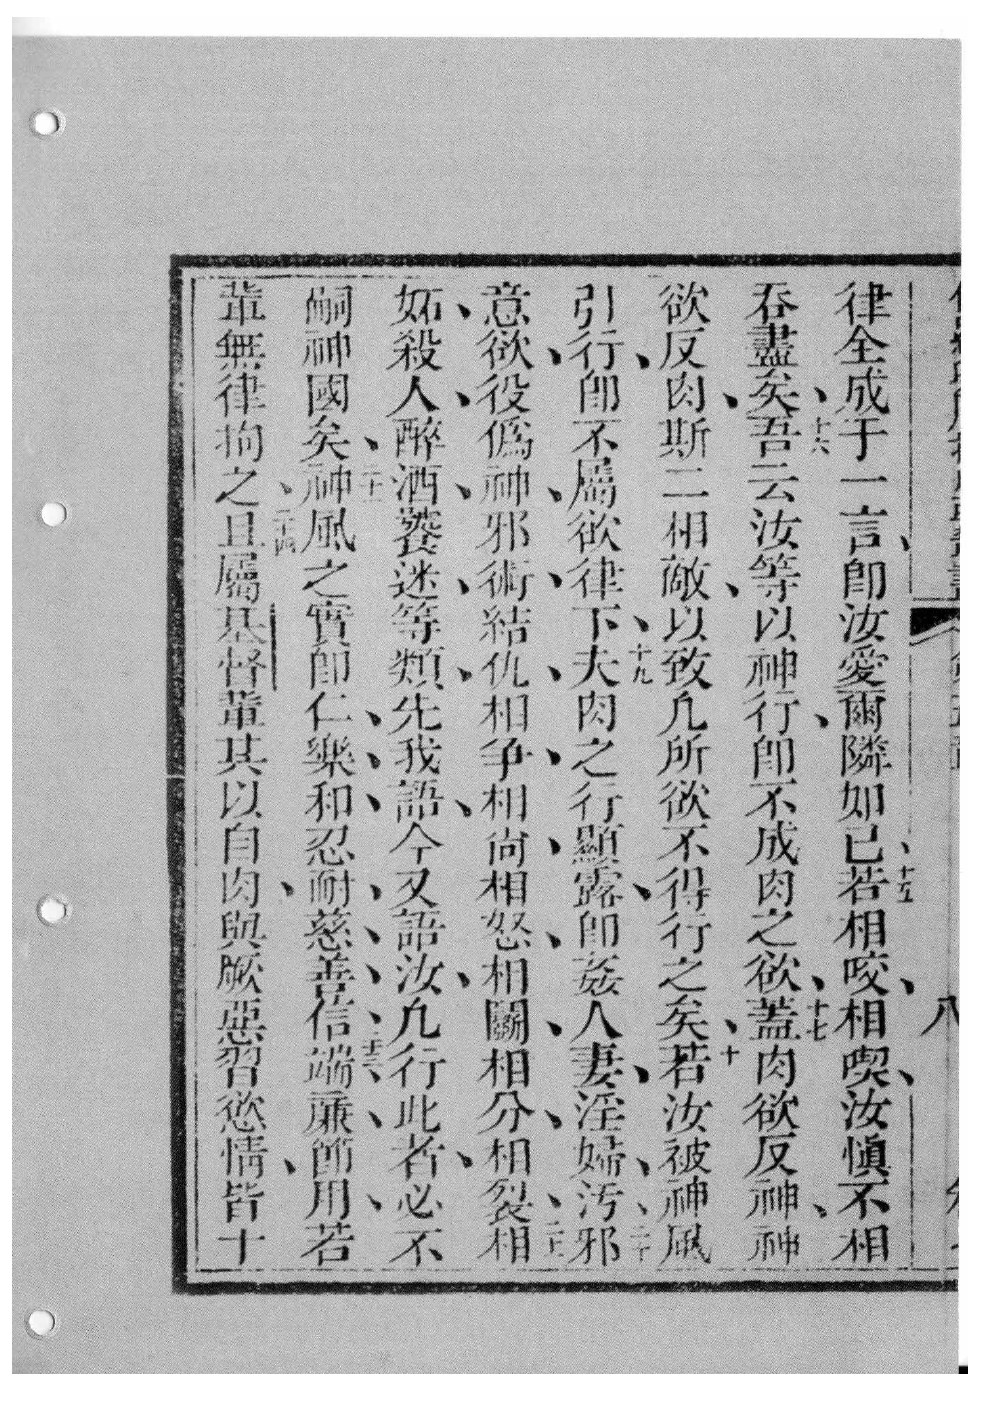 八
律全成于一言、卽汝愛爾隣如已、十五若相咬、相喫、汝愼不相
吞盡矣、十六吾云汝等以神行、卽不成肉之欲、十七蓋肉欲反神、神
欲反肉、斯二相敵、以致凡所欲不得行之矣、十若汝被神風
引行、卽不屬欲律下、十九夫肉之行顯露、卽姦人妻、淫婦、汚、二十邪
意欲、役僞神、邪術、結仇、相争、相尙、相怒、相鬬、相分、相裂、二一相
妬、殺人、醉酒、饕迷、等類、先我語、今又語汝、凡行此者、必不
嗣神國矣、二二神風之實卽仁、樂、和、忍耐、慈、善、信、二三端、廉、節用、若
輩無律拘之、二四且屬基督輩其以自肉、與厥惡習慾情、皆十